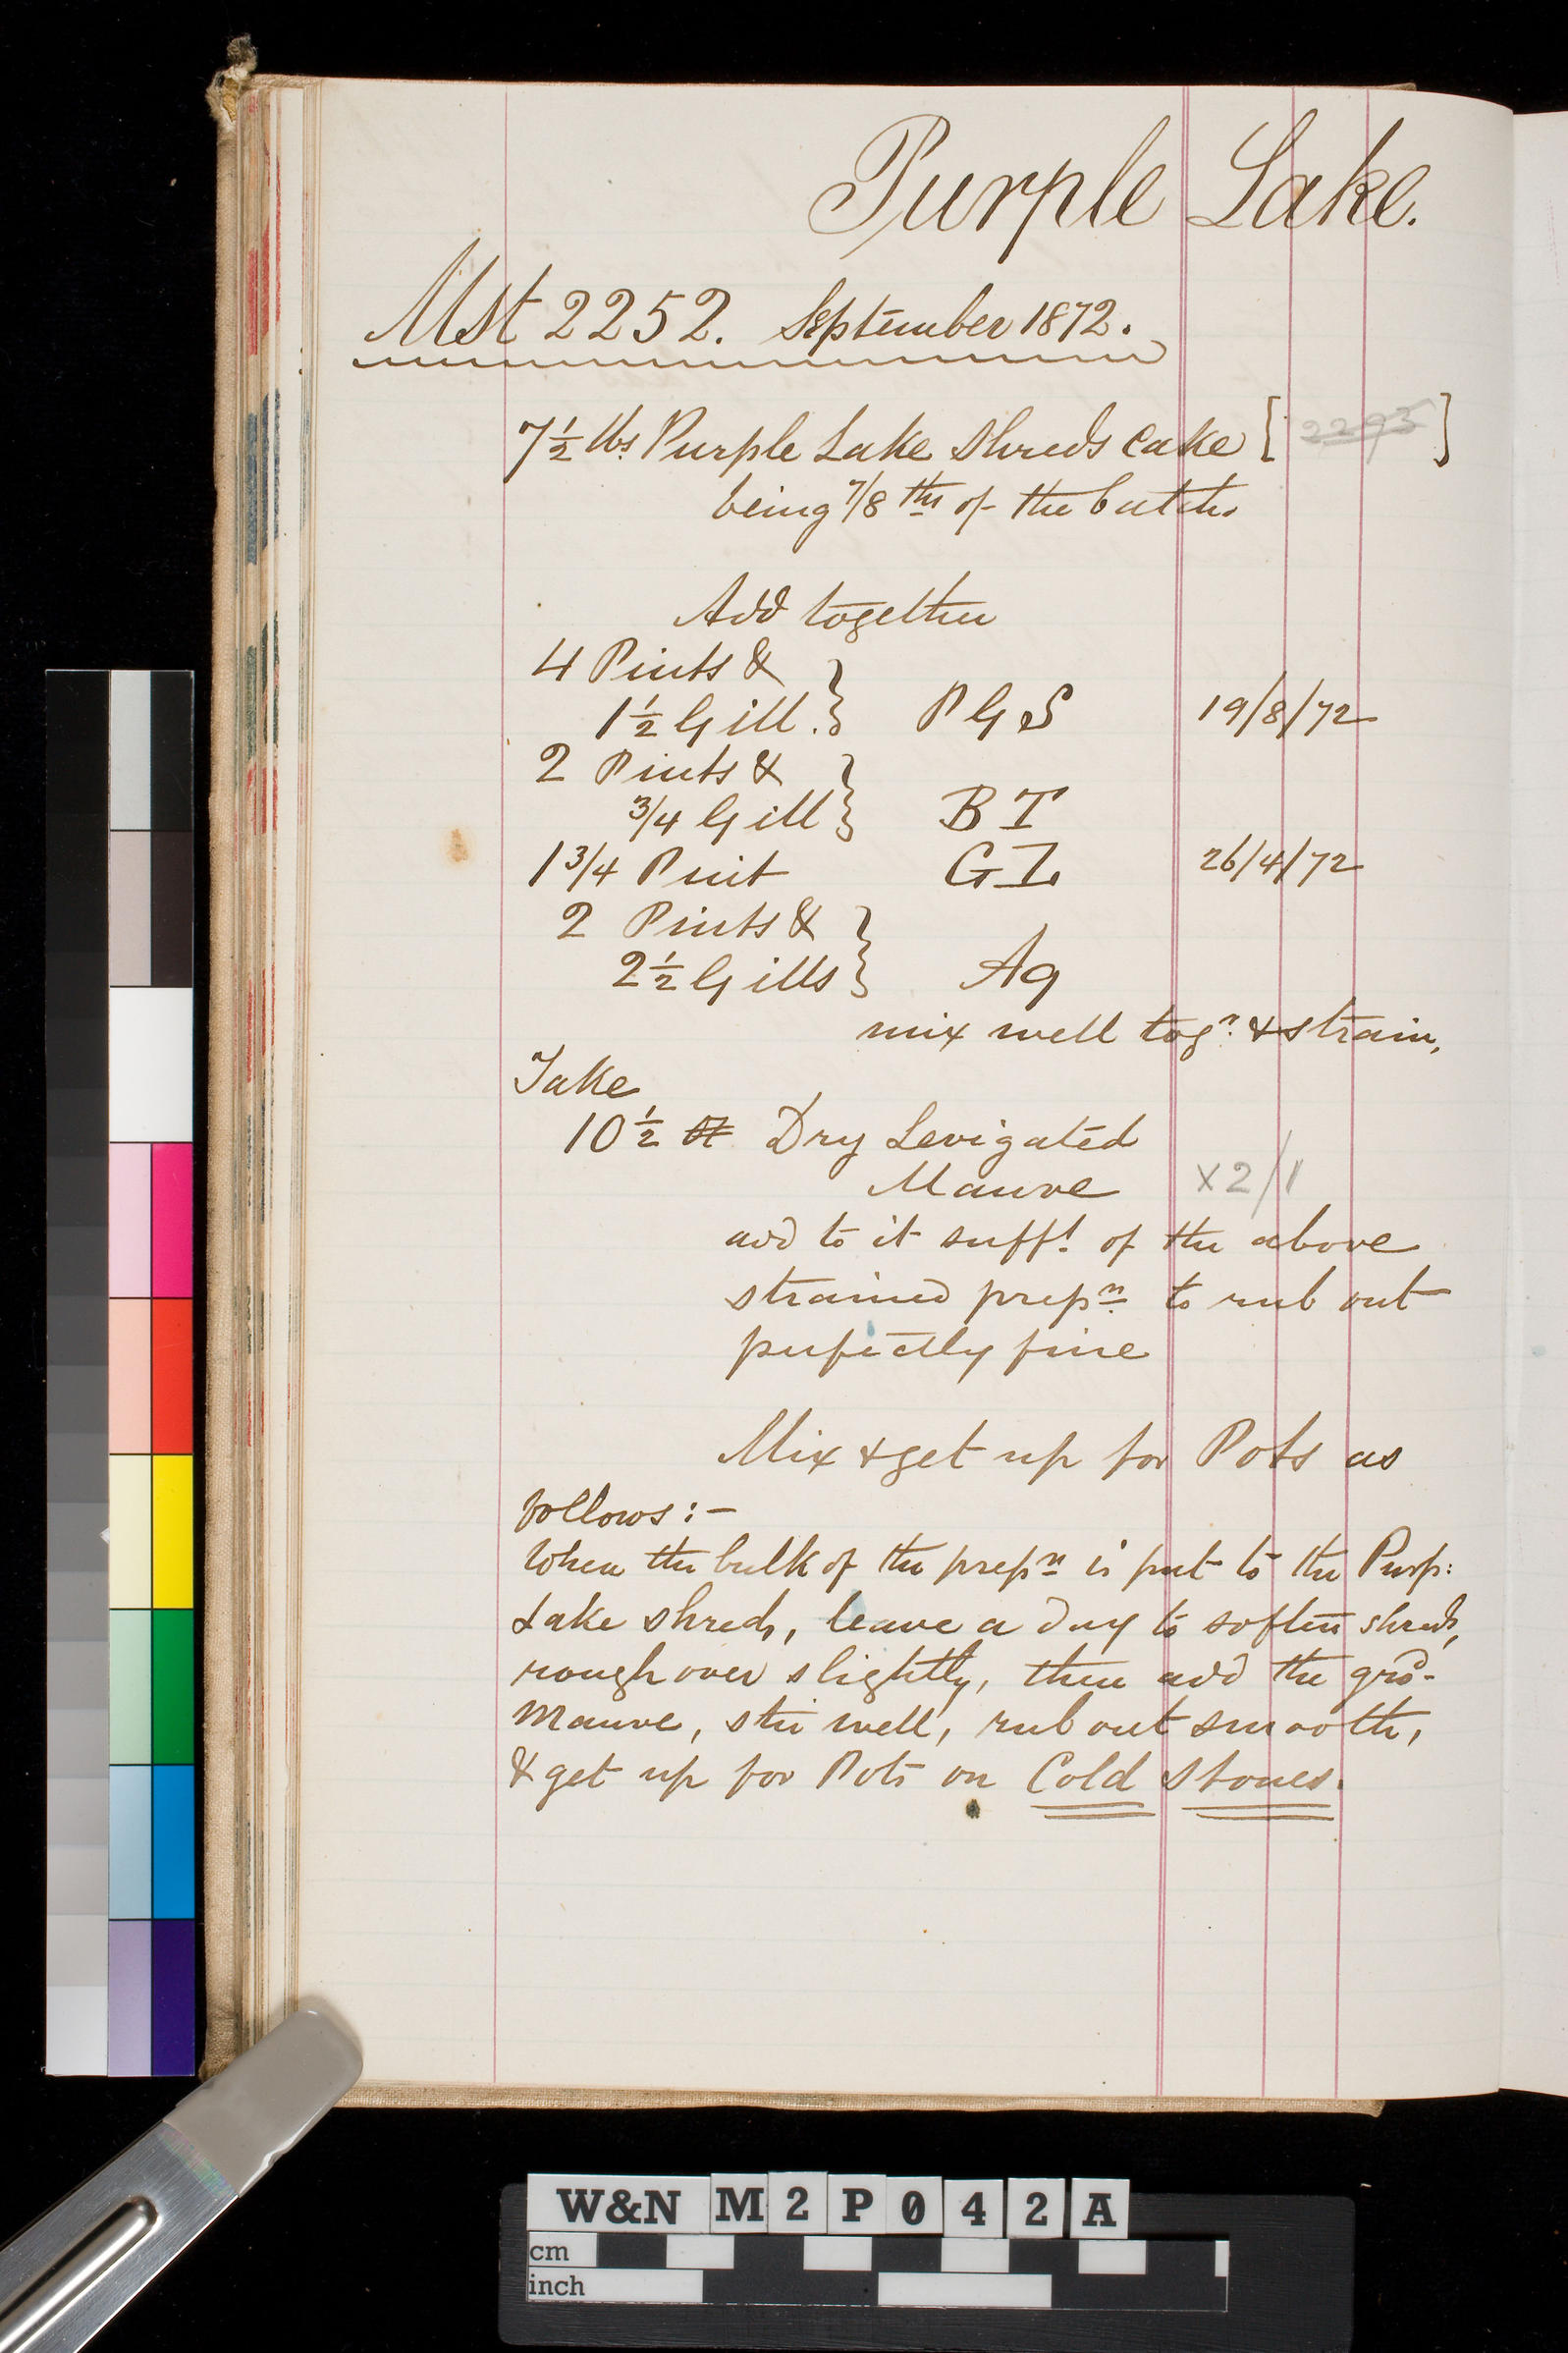 Purple Lake.
Mst 2252. September 1872.
7½ lbs. Purple Lake Shreds Cake [ 2295 ]
being 7/8ths of the batch.
Add together
4 Pints &
1½ Gill. } P G S 19/8/72
2 Pints &
3/4 Gill } B T
1 3/4 Pint G I 26/4/72
2 Pints &
2½ Gills } Aq
mix well togr. & strain,
Take
10½ Dry Levigated
Mauve X2/1
add to it sufft. of the above
strained prepn. to rub out
perfectly fine
Mix & get up for Pots as
follows:-
When the bulk of the prepn. is put to the Purp:
Lake shreds, leave a day to soften shreds,
rough over slightly, then add the grd.
Mauve, stir well, rub out smooth,
& get up for Pots on Cold Stones.
W&N M2P042A
cm
inch